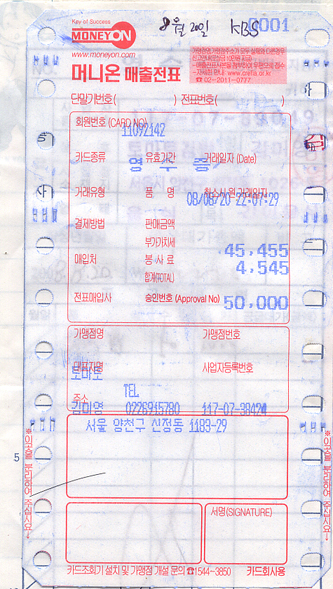 8월 20일 KBS 0001
Key of Success
MONEYON
www.moneyon.com
머니온 매출전표
☎ 02-2011-0777
단말기번호( ) 전표번호( )
회원번호 (CARD NO)
11092142
카드종류 유효기간 거래일자 (Date)
영 수 증
거래유형 품 명 취소시 원 거래일자
08/08/20 22:07:29
결제방법 판매금액
부가가치세 45,455
매입처 봉사료 4,545
합계(TOTAL)
전표매입사 승인번호 (Approval No) 50,000
가맹점명 가맹점번호
대표자명 사업자등록번호
토마토
주소 TEL
김미영 0226915780 117-07-38424
서울 양천구 신정동 1183-29
5
서명(SIGNATURE)
카드조회기 설치 및 가맹점 개설 문의 ☎1544-3850 카드회사용